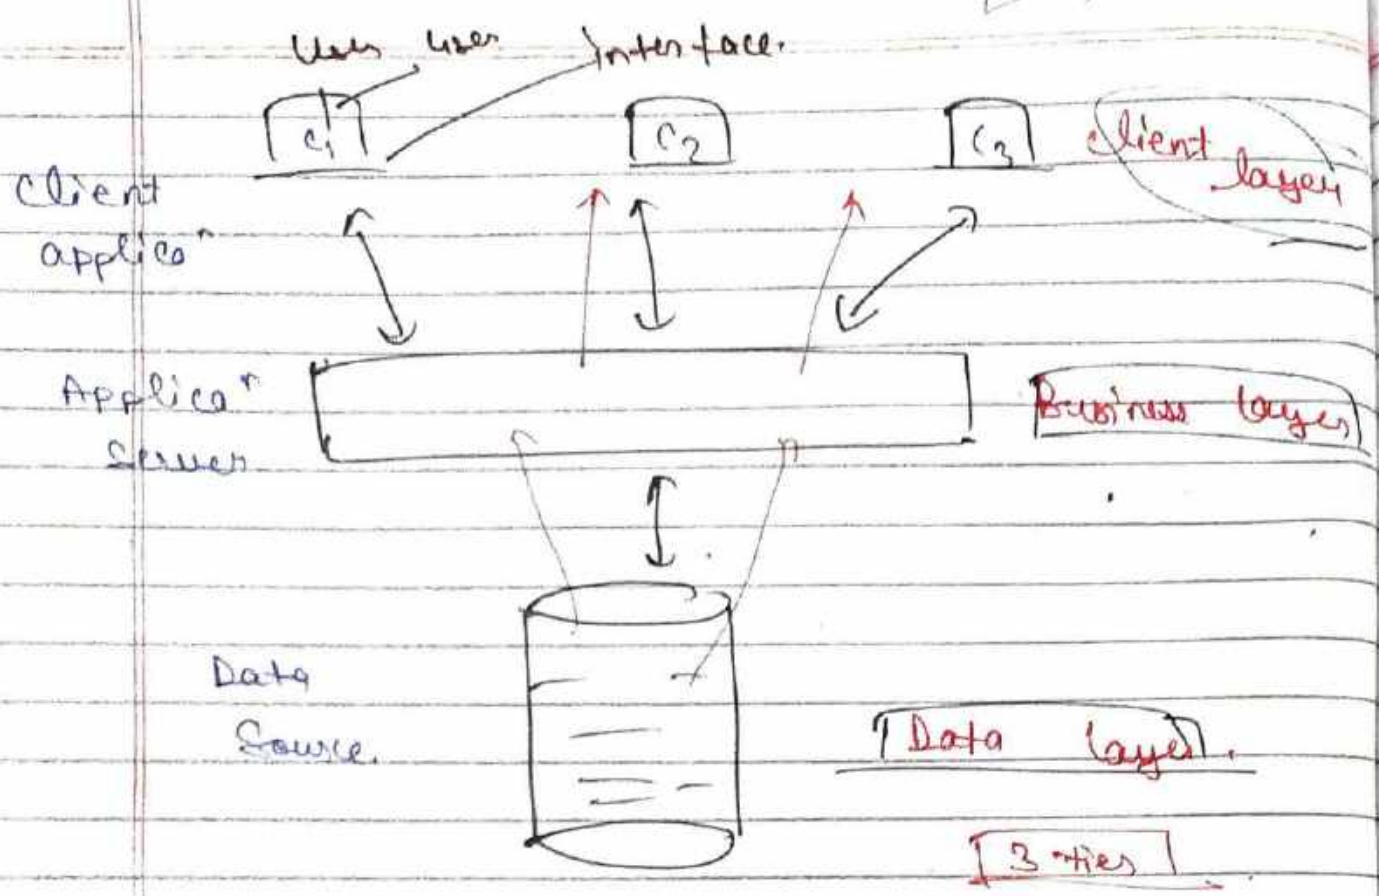 User user Interface.
C1 C2 C3 Client layer
Client
applicaⁿ
Applicaⁿ
Server
Business layer
Data
Source.
Data layer.
3 tier